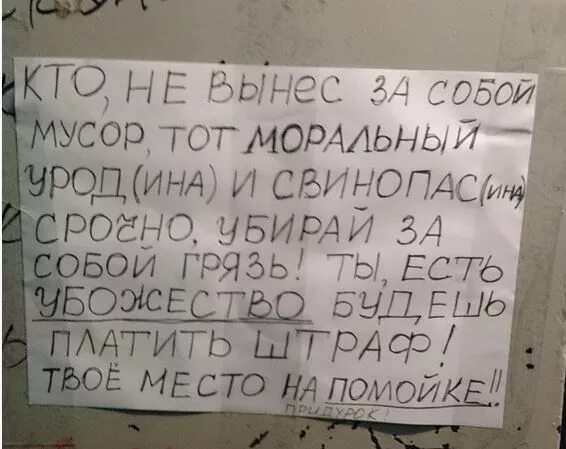 КТО, НЕ ВЫНЕС ЗА СОБОЙ
МУСОР, ТОТ МОРАЛЬНЫЙ
УРОД,(ИНА) И СВИНОПАС(ИНА)
СРОЧНО, УБИРАЙ ЗА
СОБОЙ ГРЯЗЬ! ТЫ, ЕСТЬ
УБОЖЕСТВО БУДЕШЬ
ПЛАТИТЬ ШТРАФ!
ТВОЁ МЕСТО НА ПОМОЙКЕ!!
ПРИДУРОК!